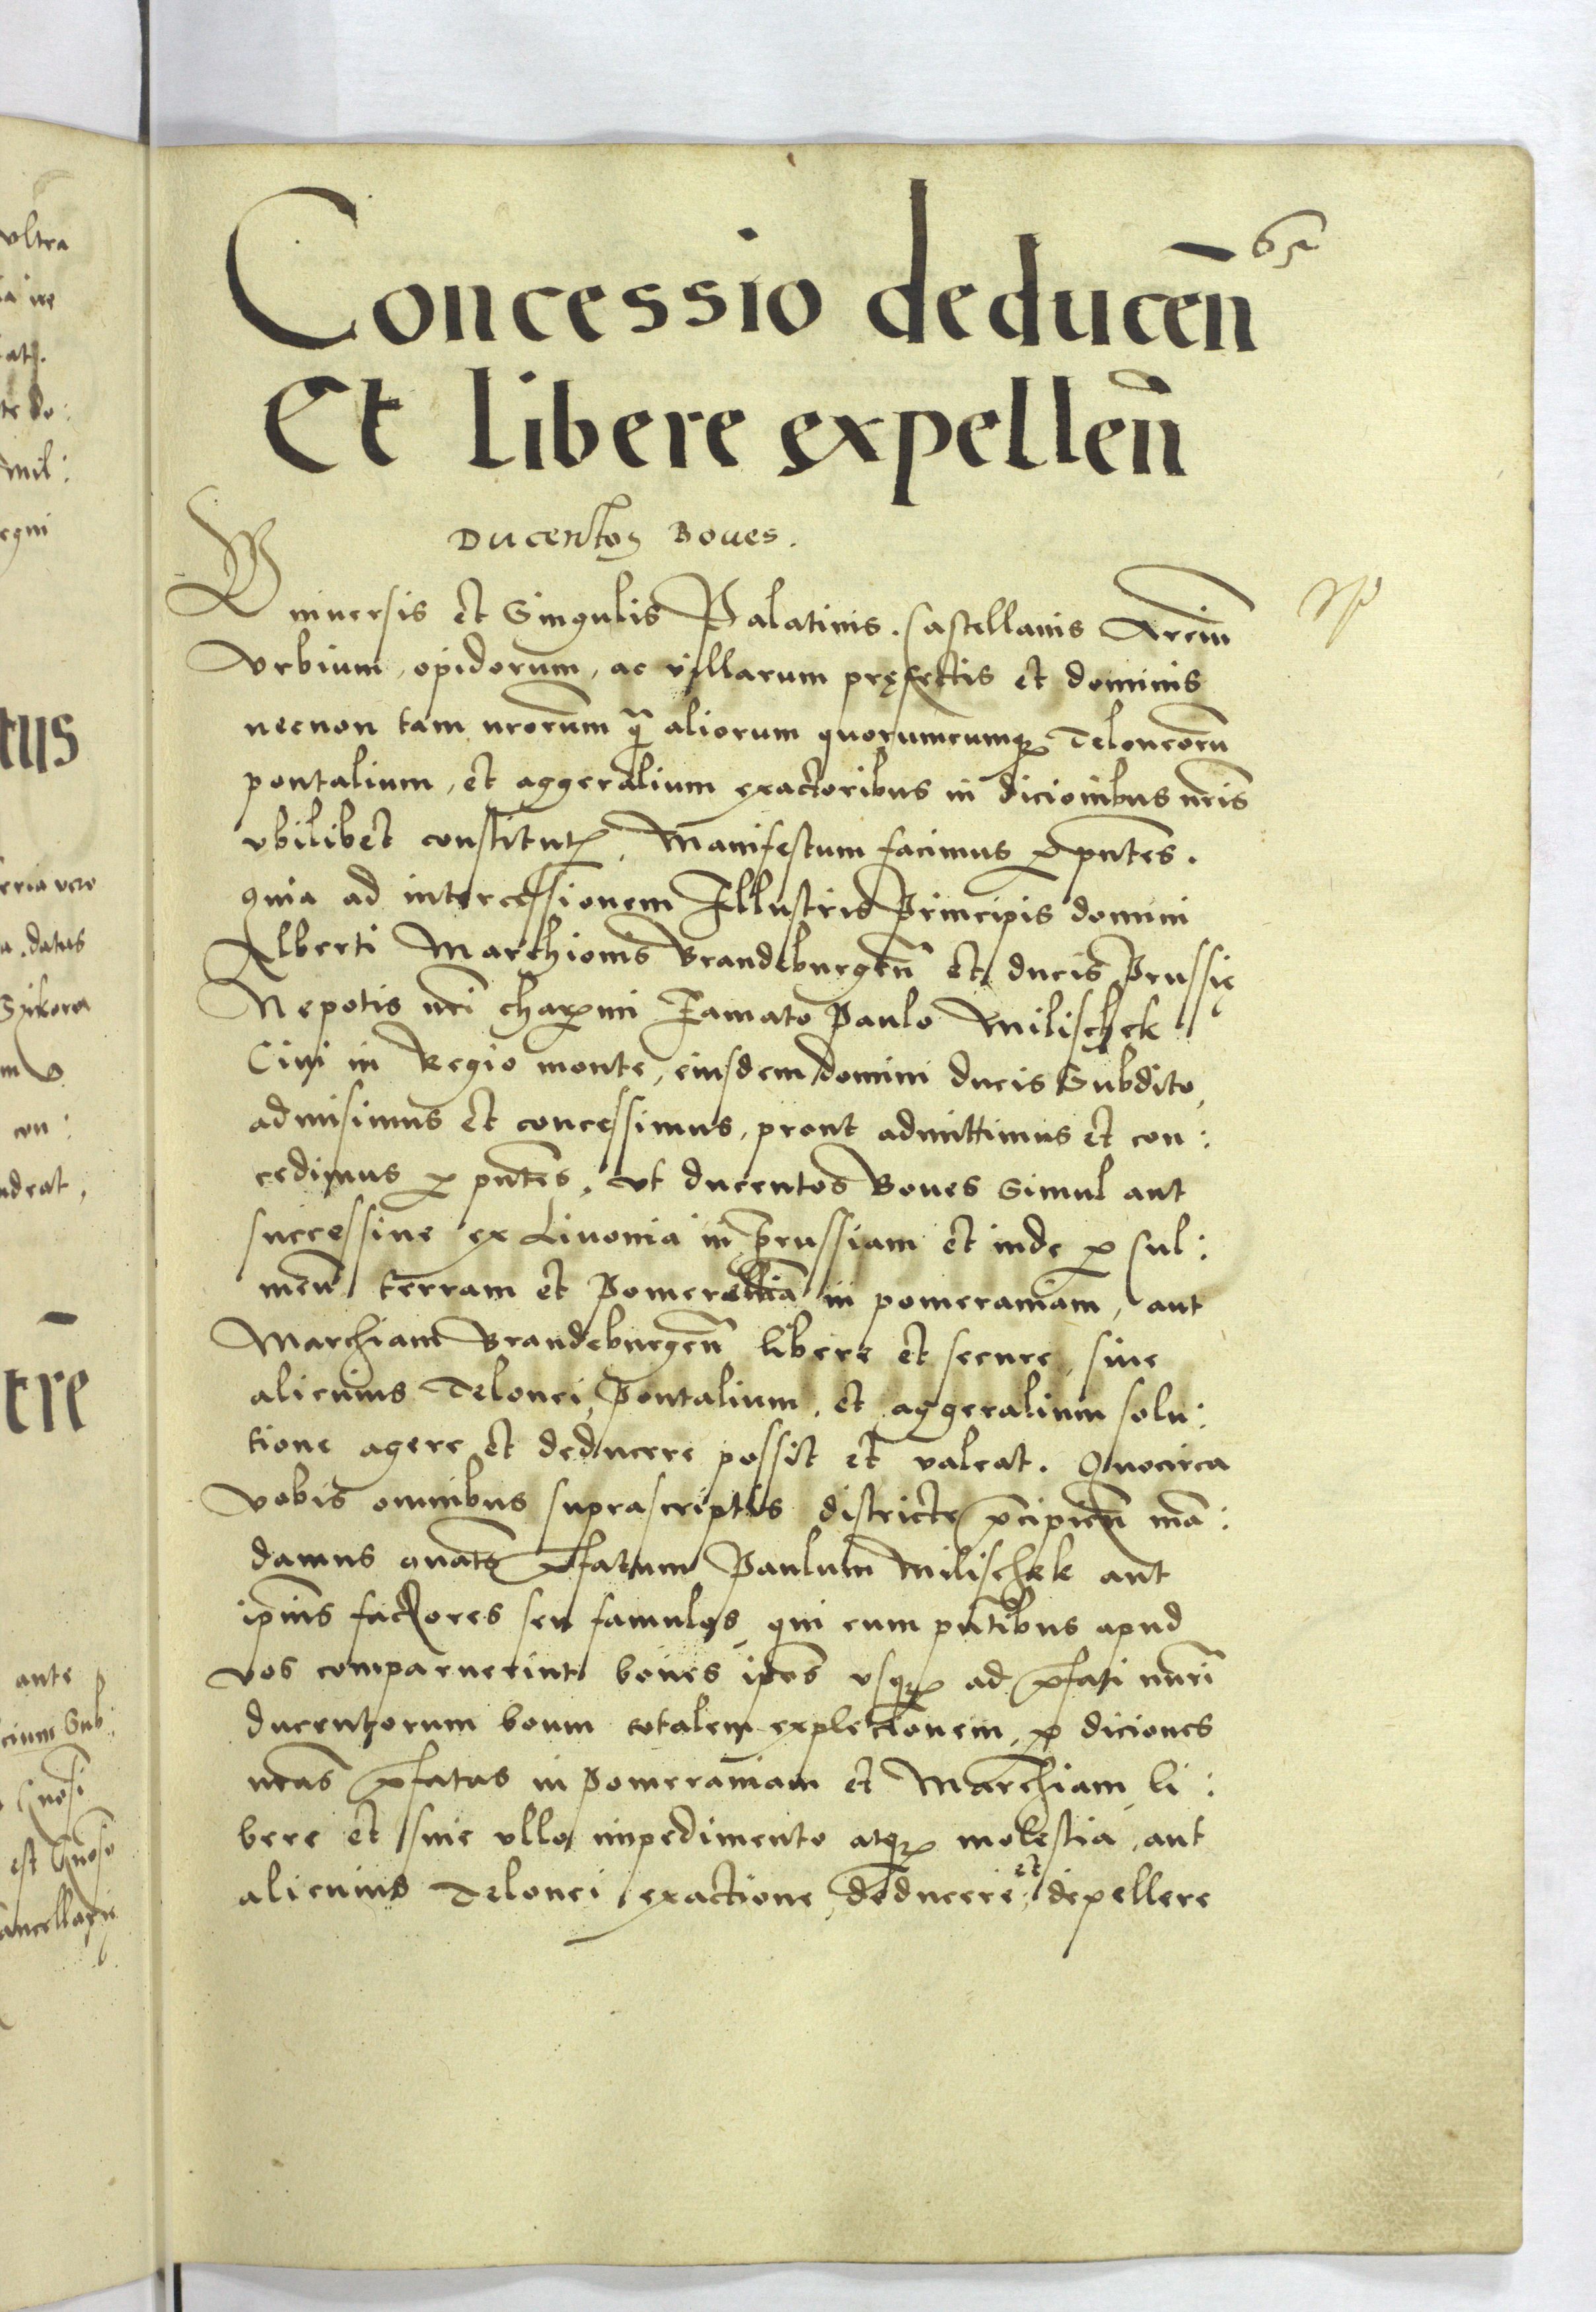 Concessio deducen̄
Et libere expellen̄
Ducentos Boues.
Vniuersis et Singulis Palatinis. Castellanis Arciu̅
Vrbium, opidorum, ac villarum pręfectis et dominis
necnon tam nrorum̄ q̄ aliorum quorumcumqꝫ Teloneoru̅
pontalium, et aggeralium exactoribus in dicionibus nr̄is
vbilibet constitutꝭ, Manifestum facimus ꝑ pn̄tes.
quia ad intercessionem Illustris Principis domini
Alberti Marchionis Brandeburgen̄ et ducis Prussię
Nepotis nr̄i charꝫmi Famato Paulo Milischek
Ciui in Regio monte, eiusdem domini ducis Subdito,
admisimus et concessimus, prout admittimus et con:
cedimus ꝑ pn̄tes, vt ducentos Boues Simul aut
successiue ex Liuonia in Prussiam et inde ꝑ Cul:
men̄ terram et Pomerelliā in pomeraniam, aut
Marchiam Brandeburgen̄ libere et secure, sine
alicuius Telonei, Pontalium, et aggeralium solu:
tione agere et deducere possit et valeat. Quocirca
vobis omnibus suprascriptis districte p̄cipien̄ mā:
damus quatꝫ p̄fatum Paulum Milischek aut
ipīus factores seu famulos, qui cum pn̄tibus apud
vos comparuerint boues ip̄os vsqꝫ ad p̄fati nūri
ducentorum boum totalem expletionem, ꝑ diciones
nr̄as p̄fatas in Pomeraniam et Marchiam, li:
bere et sine vllo impedimento atqꝫ molestia, aut
alicuius Telonei exactione, deducere et depellere